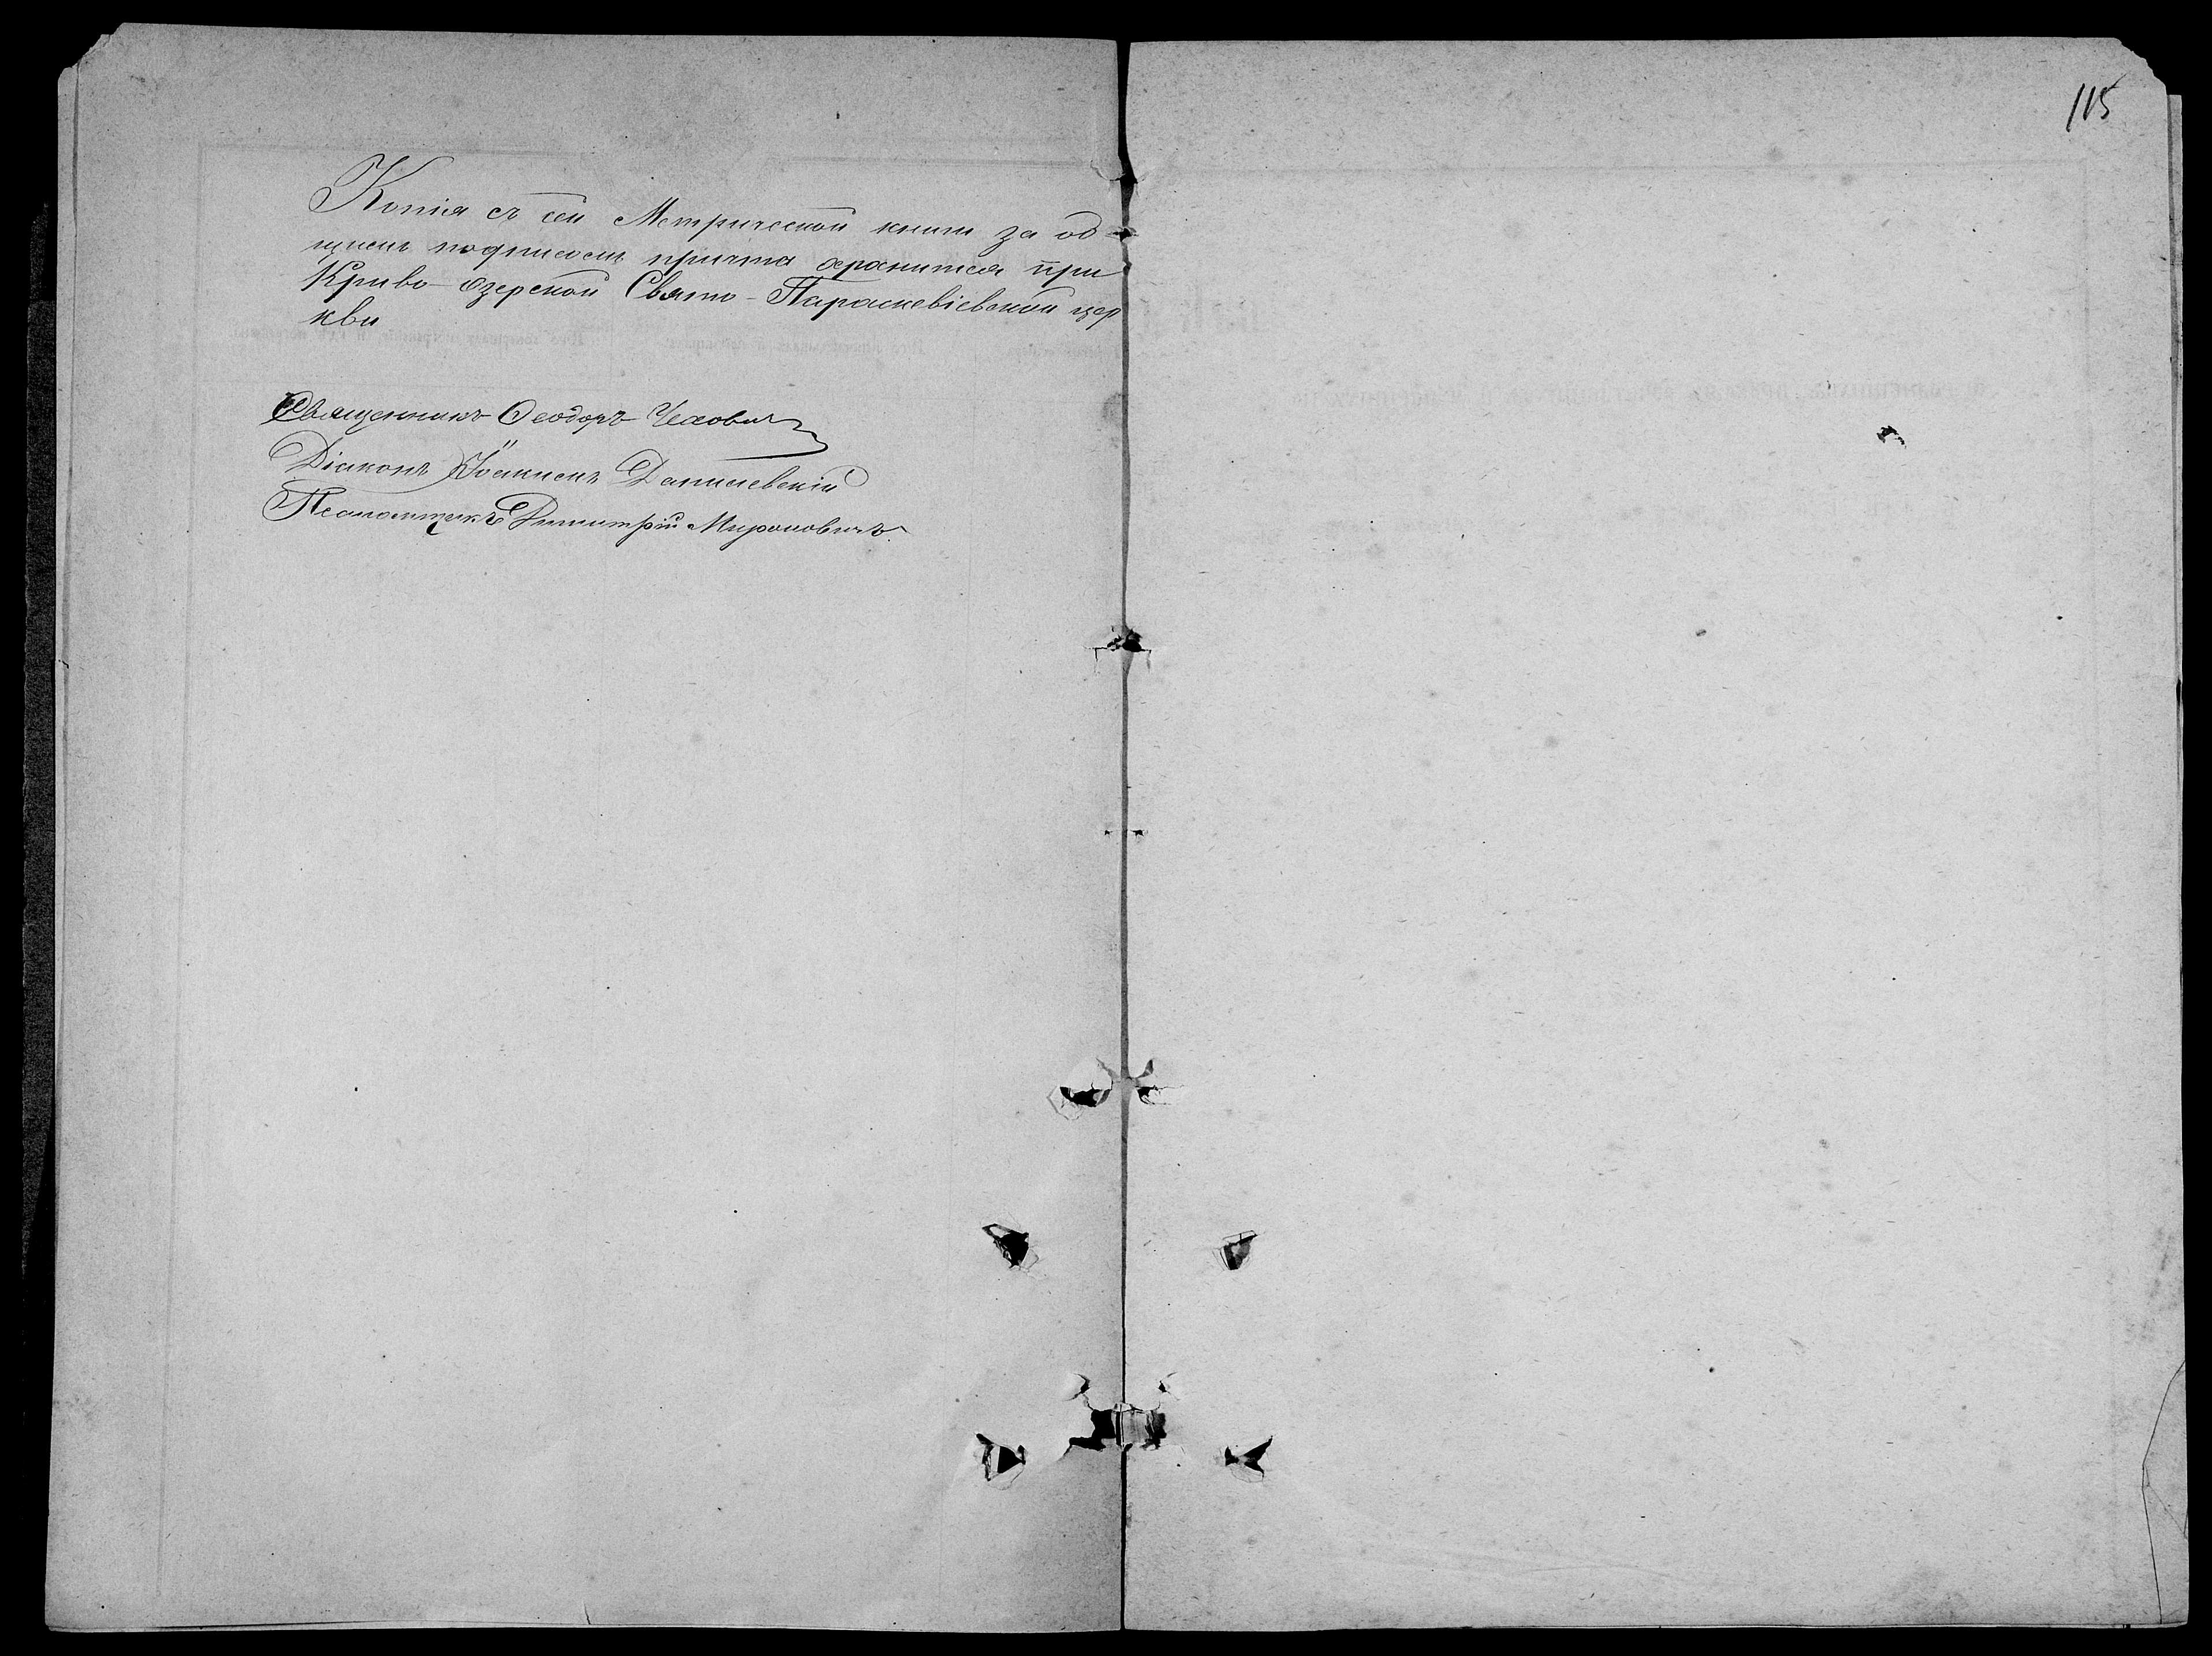 115
Копія съ сей Метрической книги за об-
щимъ подписомъ причта хранится при
Криво-Озерской Свято-Параскевіевской цер
кви
Священникъ Ѳеодоръ Чехович
Діаконъ Іоакимъ Данилевскій
Псаломщикъ Димитрій Мироновичъ.